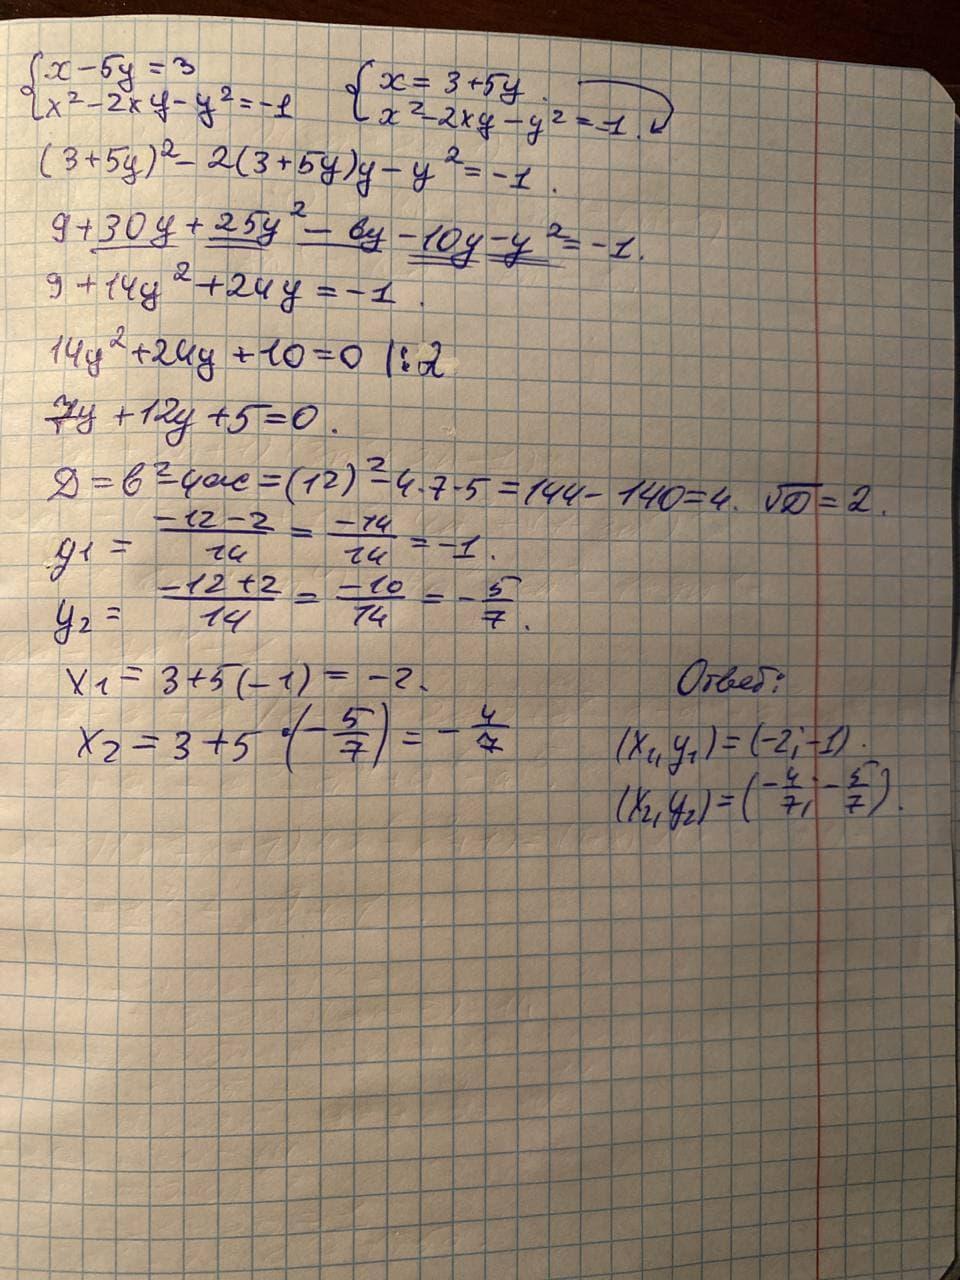 {x − 5y = 3
x² − 2xy − y² = −1
{x = 3 + 5y.
x² − 2xy − y² = −1.
(3+5y)² − 2(3+5y)y − y² = −1.
9 + 30y + 25y² − 6y − 10y − y² = −1.
9 + 14y² + 24y = −1.
14y² + 24y + 10 = 0 |:2
7y + 12y + 5 = 0.
D = b² − 4ac = (12)² − 4·7·5 = 144 − 140 = 4. √D = 2.
y1 = (−12−2)/14 = −14/14 = −1.
y2 = (−12+2)/14 = −10/14 = −5/7.
x1 = 3 + 5(−1) = −2.
x2 = 3 + 5·(−5/7) = −4/7
Ответ:
(x1, y1) = (−2; −1).
(x2, y2) = (−4/7; −5/7).